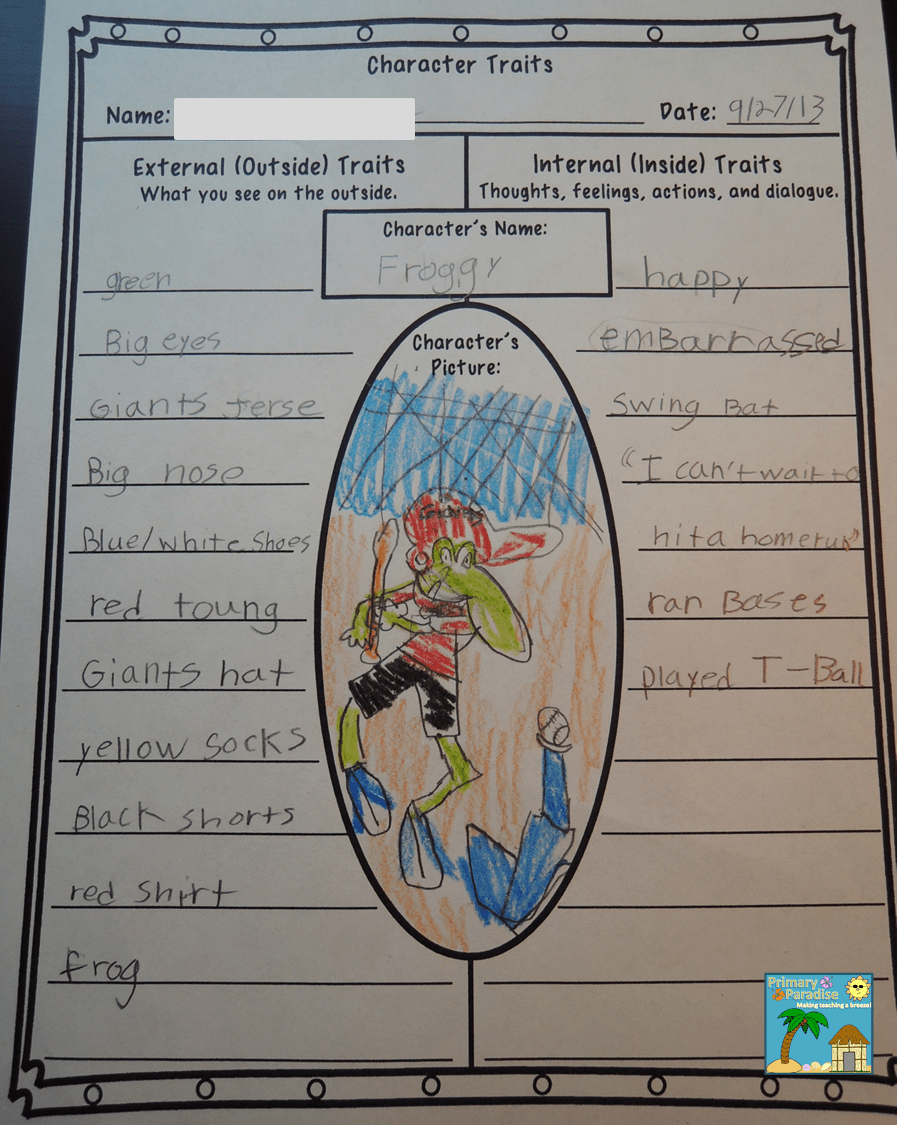 Character Traits
Name:
Date: 9/27/13
External (Outside) Traits
What you see on the outside.
Internal (Inside) Traits
Thoughts, feelings, actions, and dialogue.
Character's Name:
Froggy
green
Big eyes
Giants Jerse
Big nose
Blue/white Shoes
red toung
Giants hat
yellow socks
Black shorts
red shirt
frog
Character's
Picture:
Giants
happy
emBarrassed
Swing Bat
"I can't wait to
hit a homerun"
ran Bases
played T-Ball
Primary
Paradise
Making teaching a breeze!